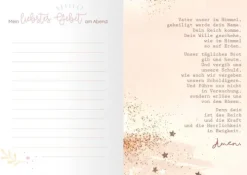 Mein liebstes Gebet am Abend
Vater unser im Himmel,
geheiligt werde dein Name.
Dein Reich komme.
Dein Wille geschehe,
wie im Himmel
so auf Erden.
Unser tägliches Brot
gib uns heute.
Und vergib uns
unsere Schuld,
wie auch wir vergeben
unsern Schuldigern.
Und führe uns nicht
in Versuchung,
sondern erlöse uns
von dem Bösen.
Denn dein ist
das Reich
und die Kraft
und die Herrlichkeit
in Ewigkeit.
Amen